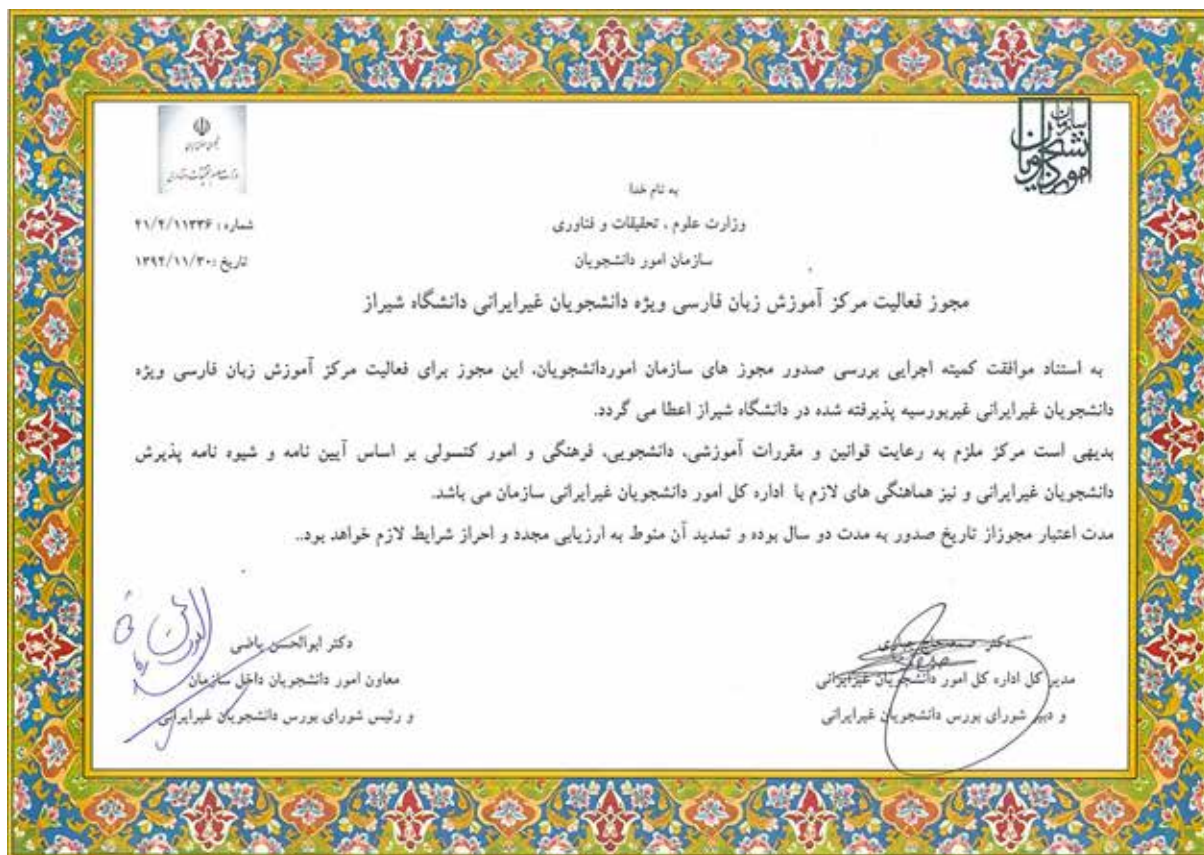 سازمان امور دانشجویان
جمهوری اسلامی ایران
وزارت علوم، تحقیقات و فناوری
به نام خدا
وزارت علوم ، تحقیقات و فناوری
شماره : ۴۱/۴/۱۱۳۳۶
سازمان امور دانشجویان
تاریخ :۱۳۹۴/۱۱/۳۰
مجوز فعالیت مرکز آموزش زبان فارسی ویژه دانشجویان غیرایرانی دانشگاه شیراز
به استناد موافقت کمیته اجرایی بررسی صدور مجوز های سازمان اموردانشجویان، این مجوز برای فعالیت مرکز آموزش زبان فارسی ویژه
دانشجویان غیرایرانی غیربورسیه پذیرفته شده در دانشگاه شیراز اعطا می گردد.
بدیهی است مرکز ملزم به رعایت قوانین و مقررات آموزشی، دانشجویی، فرهنگی و امور کنسولی بر اساس آیین نامه و شیوه نامه پذیرش
دانشجویان غیرایرانی و نیز هماهنگی های لازم با اداره کل امور دانشجویان غیرایرانی سازمان می باشد.
مدت اعتبار مجوزاز تاریخ صدور به مدت دو سال بوده و تمدید آن منوط به ارزیابی مجدد و احراز شرایط لازم خواهد بود..
دکتر
مدیر کل اداره کل امور دانشجویان غیرایرانی
و دبیر شورای بورس دانشجویان غیرایرانی
دکتر ابوالحسن ریاضی
معاون امور دانشجویان داخل سازمان
و رئیس شورای بورس دانشجویان غیرایرانی